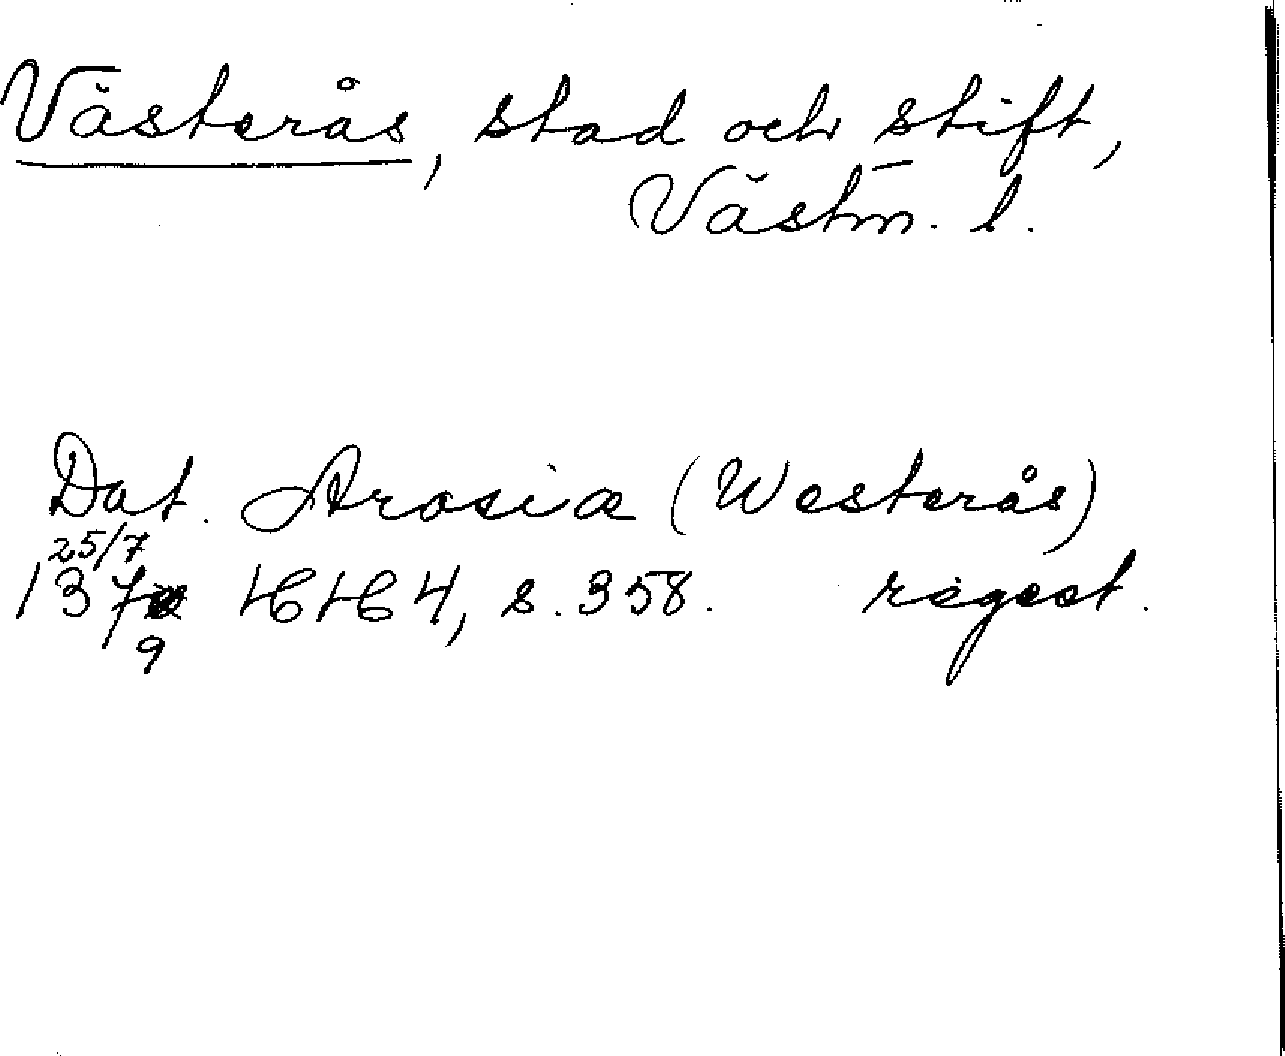 Västerås, stad och stift,
Västm. l.
Dat. Arosia (Westerås)
25/7
1379 HH 4, s. 358. regest.